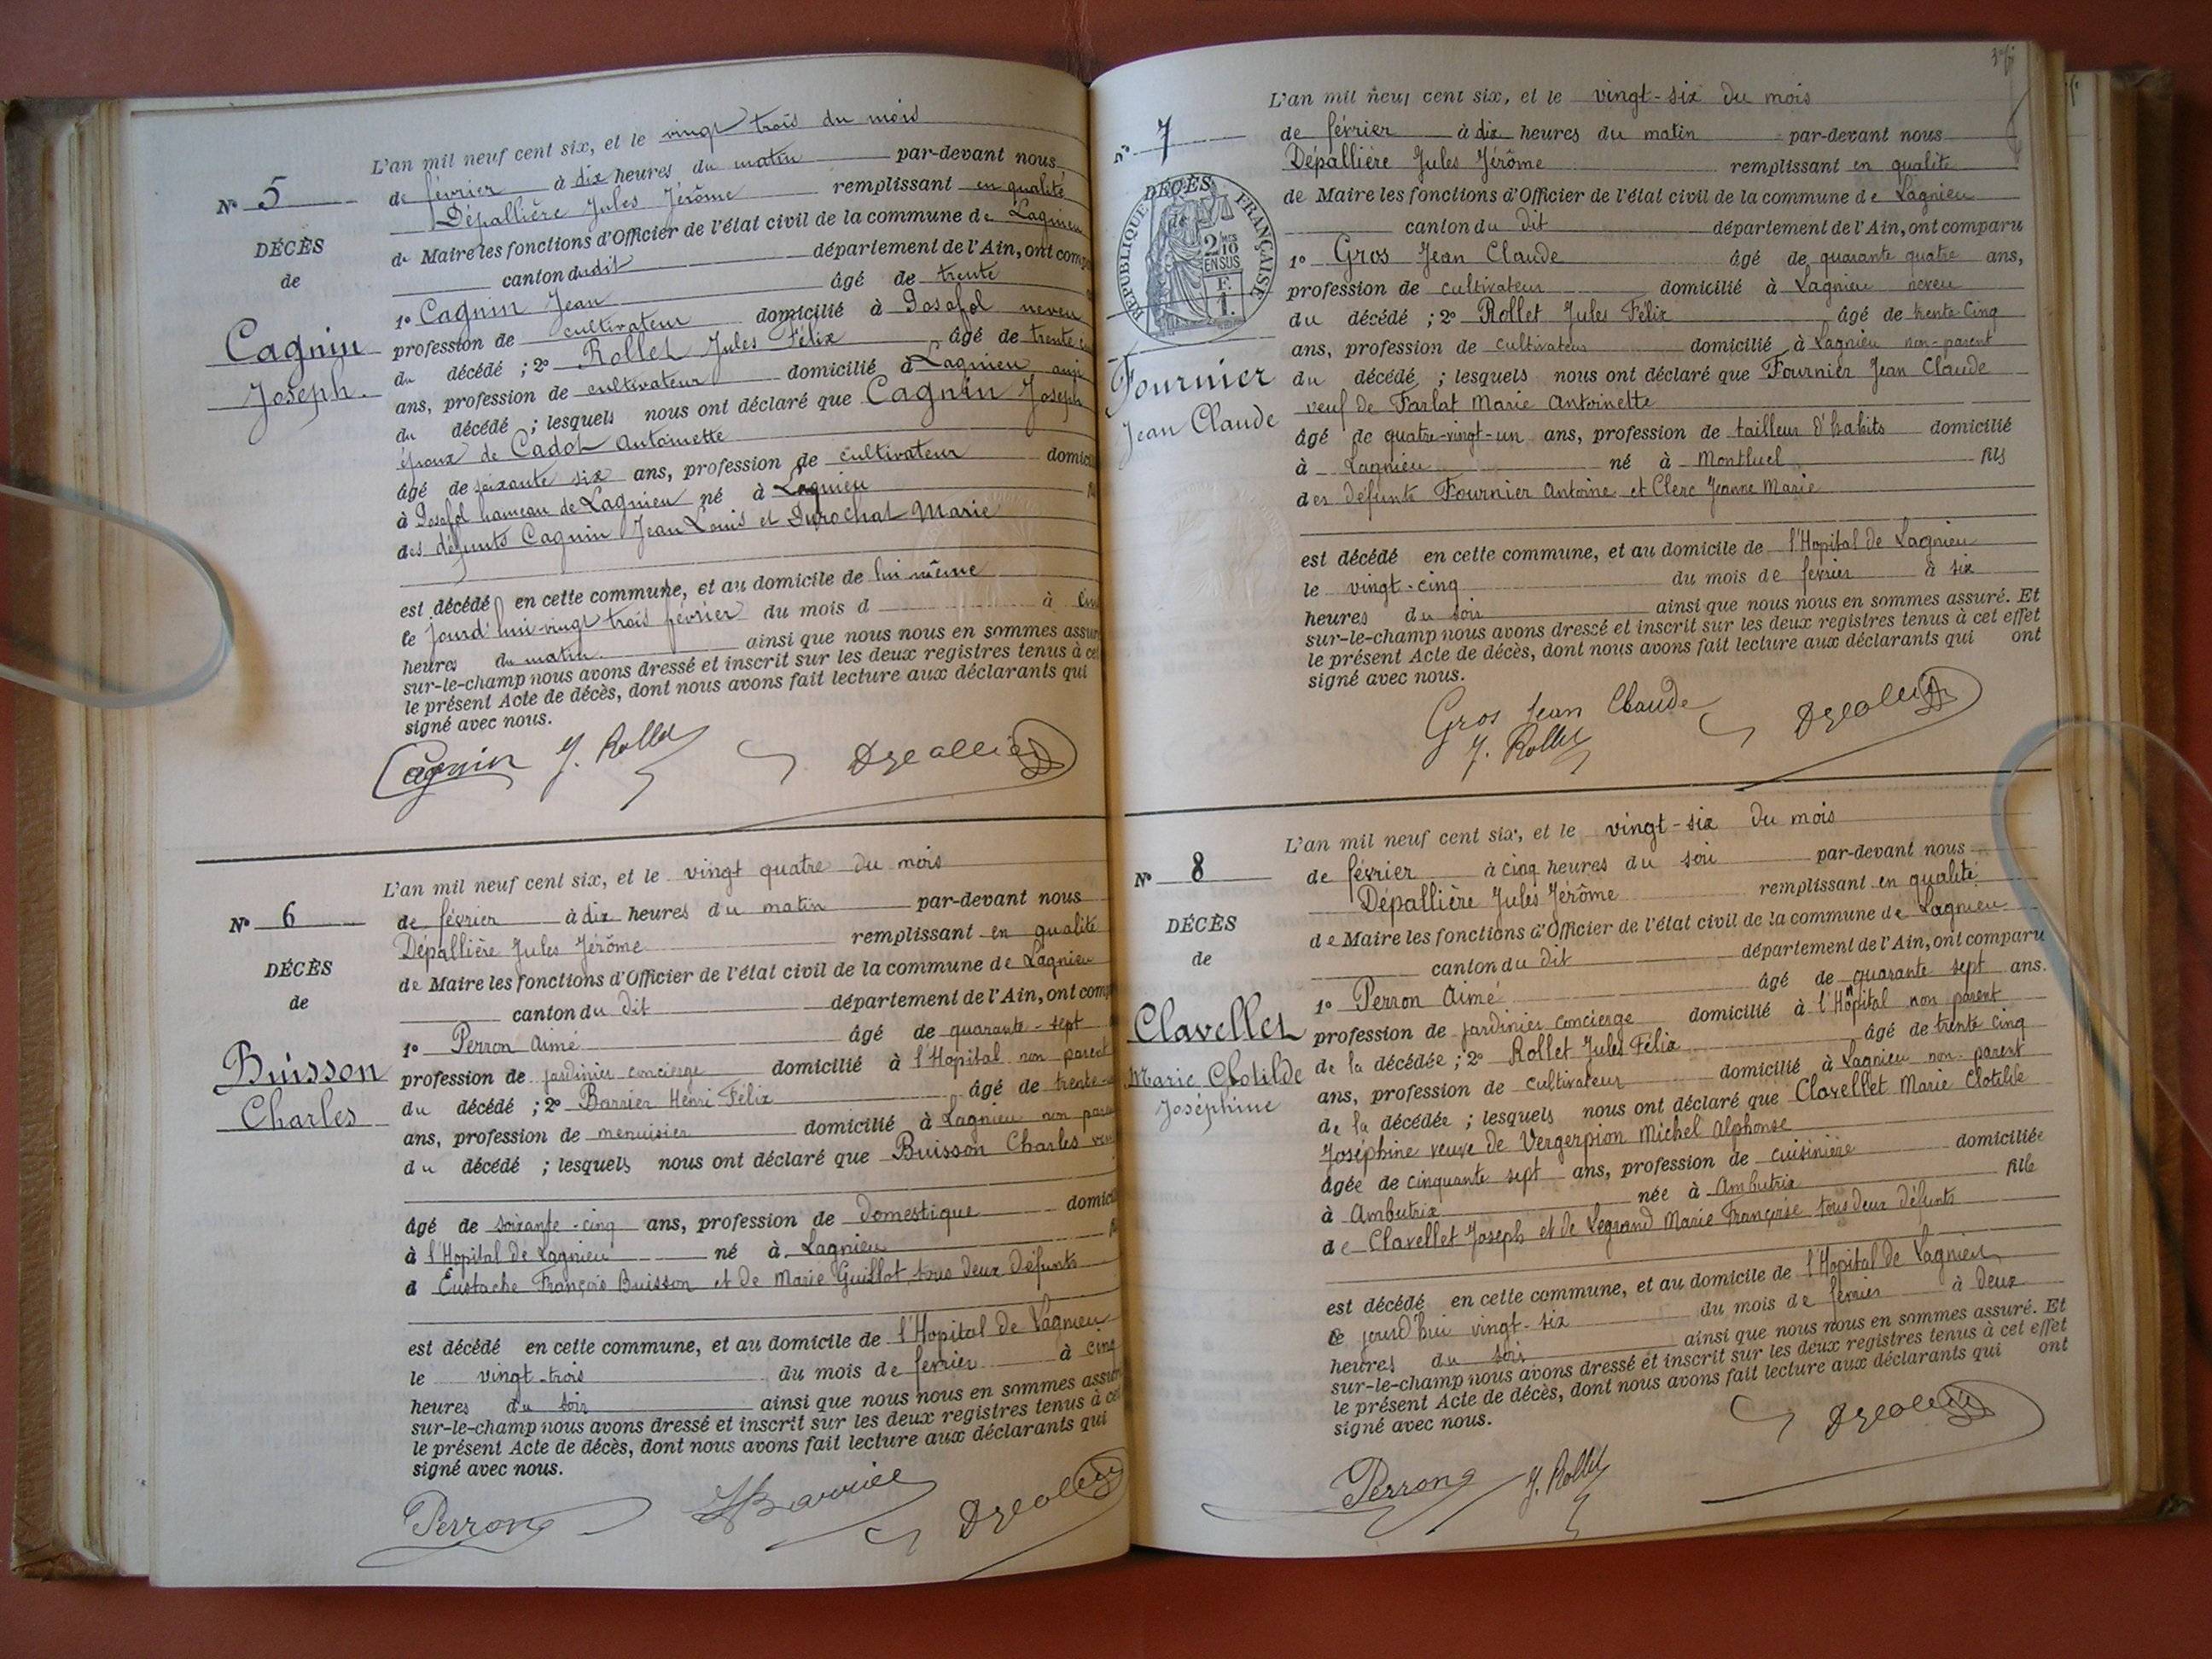 L'an mil neuf cent six, et le vingt trois du mois
de février à dix heures du matin par-devant nous
Dépallière Jules Jérôme remplissant en qualité
de Maire les fonctions d'Officier de l'état civil de la commune de Lagnieu
canton du dit département de l'Ain, ont comp
1° Cagnin Jean âgé de trente
profession de cultivateur domicilié à Posafol neveu
du décédé ; 2° Rollet Jules Félix âgé de trente
ans, profession de cultivateur domicilié à Lagnieu ami
du décédé ; lesquels nous ont déclaré que Cagnin Joseph
époux de Cadot Antoinette
âgé de soixante six ans, profession de cultivateur domici
à Posafol hameau de Lagnieu né à Lagnieu
des défunts Cagnin Jean Louis et Durochat Marie
est décédé en cette commune, et au domicile de lui même
le jourd'hui vingt trois février du mois d à
heures du matin ainsi que nous nous en sommes assur
sur-le-champ nous avons dressé et inscrit sur les deux registres tenus à ce
le présent Acte de décès, dont nous avons fait lecture aux déclarants qui
signé avec nous.
Cagnin J. Rollet
N° 5
DÉCÈS
de
Cagnin
Joseph
L'an mil neuf cent six, et le vingt quatre du mois
de février à dix heures du matin par-devant nous
Dépallière Jules Jérôme remplissant en qualité
de Maire les fonctions d'Officier de l'état civil de la commune de Lagnieu
canton du dit département de l'Ain, ont comp
1° Perron Aimé âgé de quarante-sept
profession de jardinier concierge domicilié à l'Hopital non parent
du décédé ; 2° Barrier Henri Félix âgé de trente
ans, profession de menuisier domicilié à Lagnieu non paren
du décédé ; lesquels nous ont déclaré que Buisson Charles
âgé de soixante-cinq ans, profession de domestique domici
à l'Hopital de Lagnieu né à Lagnieu
d Eustache François Buisson et de Marie Guillot tous deux défunts
est décédé en cette commune, et au domicile de l'Hopital de Lagnieu
le vingt-trois du mois de février à cinq
heures du soir ainsi que nous nous en sommes assur
sur-le-champ nous avons dressé et inscrit sur les deux registres tenus à ce
le présent Acte de décès, dont nous avons fait lecture aux déclarants qui
signé avec nous.
Perron HBarrier
N° 6
DÉCÈS
de
Buisson
Charles
L'an mil neuf cent six, et le vingt-six du mois
de février à dix heures du matin par-devant nous
Dépallière Jules Jérôme remplissant en qualité
de Maire les fonctions d'Officier de l'état civil de la commune de Lagnieu
canton du dit département de l'Ain, ont comparu
1° Gros Jean Claude âgé de quarante quatre ans,
profession de cultivateur domicilié à Lagnieu neveu
du décédé ; 2° Rollet Jules Félix âgé de trente cinq
ans, profession de cultivateur domicilié à Lagnieu non-parent
du décédé ; lesquels nous ont déclaré que Fournier Jean Claude
veuf de Farlat Marie Antoinette
âgé de quatre-vingt-un ans, profession de tailleur d'habits domicilié
à Lagnieu né à Montluel fils
des défunts Fournier Antoine et Clerc Jeanne Marie
est décédé en cette commune, et au domicile de l'Hopital de Lagnieu
le vingt-cinq du mois de février à six
heures du soir ainsi que nous nous en sommes assuré. Et
sur-le-champ nous avons dressé et inscrit sur les deux registres tenus à cet effet
le présent Acte de décès, dont nous avons fait lecture aux déclarants qui ont
signé avec nous.
Gros Jean Claude
J. Rollet
N° 7
DÉCÈS
RÉPUBLIQUE FRANÇAISE
2/10 EN SUS
F.
1.
Fournier
Jean Claude
L'an mil neuf cent six, et le vingt-six du mois
de février à cinq heures du soir par-devant nous
Dépallière Jules Jérôme remplissant en qualité
de Maire les fonctions d'Officier de l'état civil de la commune de Lagnieu
canton du dit département de l'Ain, ont comparu
1° Perron Aimé âgé de quarante sept ans.
profession de jardinier concierge domicilié à l'Hôpital non parent
de la décédée ; 2° Rollet Jules Félix âgé de trente cinq
ans, profession de cultivateur domicilié à Lagnieu non-parent
de la décédée ; lesquels nous ont déclaré que Clavellet Marie Clotilde
Joséphine veuve de Vergerpion Michel Alphonse
âgée de cinquante sept ans, profession de cuisinière domiciliée
à Ambutrix née à Ambutrix fille
de Clavellet Joseph et de Legrand Marie Françoise tous deux défunts
est décédé en cette commune, et au domicile de l'Hopital de Lagnieu
le jourd'hui vingt-six du mois de février à deux
heures du soir ainsi que nous nous en sommes assuré. Et
sur-le-champ nous avons dressé et inscrit sur les deux registres tenus à cet effet
le présent Acte de décès, dont nous avons fait lecture aux déclarants qui ont
signé avec nous.
Perron J. Rollet
N° 8
DÉCÈS
de
Clavellet
Marie Clotilde
Joséphine